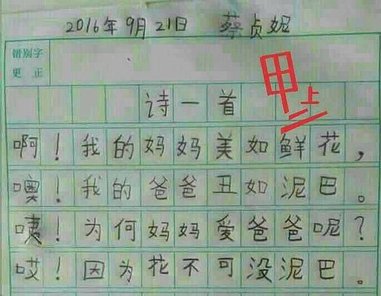 2016年9月21日 蔡贞妮
错别字
更 正
甲上
诗一首
啊！我的妈妈美如鲜花，
噢！我的爸爸丑如泥巴。
咦！为何妈妈爱爸爸呢？
哎！因为花不可没泥巴。